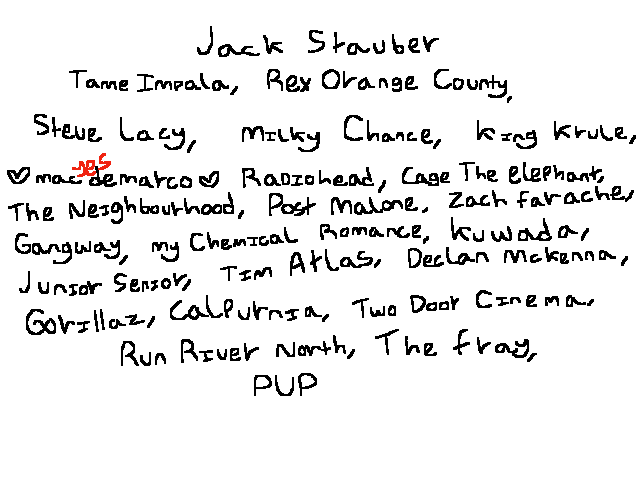 Jack Stauber
Tame Impala, Rex Orange County,
Steve Lacy, Milky Chance, King Krule,
yes
♡mac demarco♡ Radiohead, Cage The elephant,
The Neighbourhood, Post Malone, Zach farache,
Gangway, my Chemical Romance, Kuwada,
Junior Senior, Tim Atlas, Declan Mckenna,
Gorillaz, Calpurnia, Two Door Cinema,
Run River North, The fray,
PUP